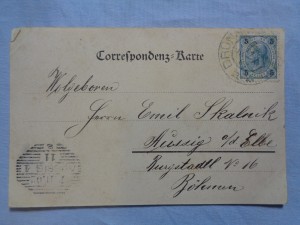 Correspondenz-Karte
Wolgeboren
Herrn Emil Skalnik
Aussig a/d Elbe
Burgstadtl No 16
Böhmen